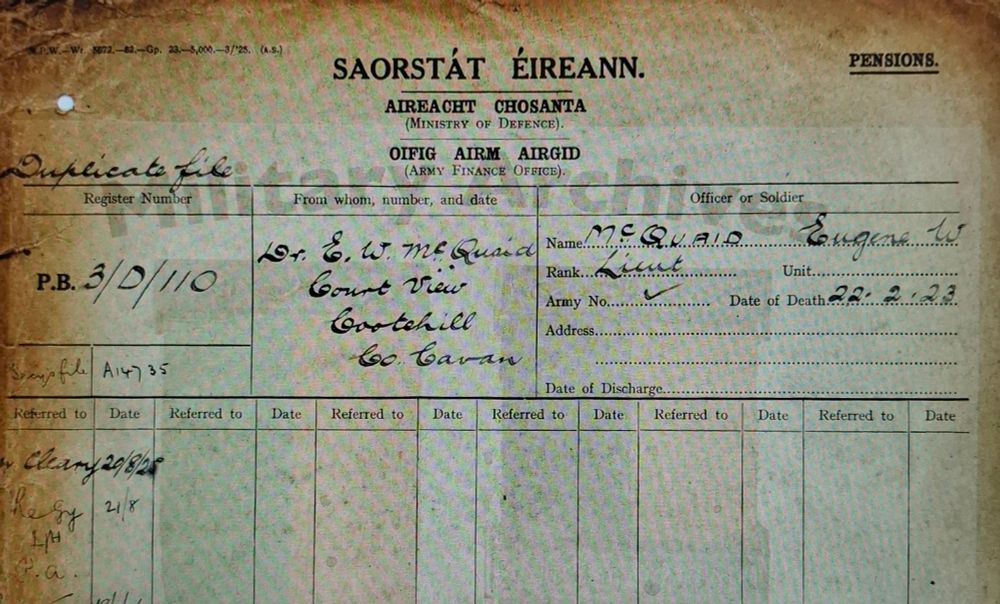 SAORSTÁT ÉIREANN.
PENSIONS.
AIREACHT CHOSANTA
(MINISTRY OF DEFENCE).
OIFIG AIRM AIRGID
(ARMY FINANCE OFFICE).
Duplicate file
Military Archives
Register Number
From whom, number, and date
Officer or Soldier
P.B. 3/D/110
Dr. E. W. McQuaid
Court View
Cootehill
Co. Cavan
Name McQUAID Eugene W
Rank Lieut Unit
Army No. ✓ Date of Death 22.2.23
Address
Date of Discharge
file A14735
Referred to Date Referred to Date Referred to Date Referred to Date Referred to Date Referred to Date
Cleary 20/8/25
21/8